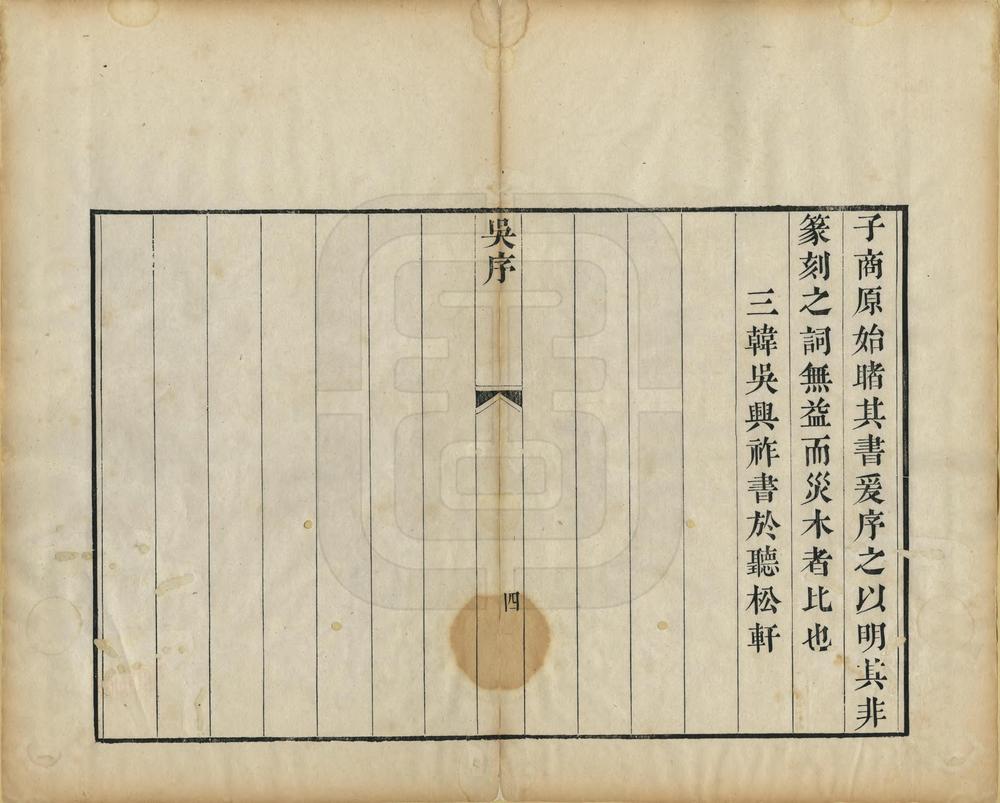 子商原始睹其書爰序之以明其非
篆刻之詞無益而災木者比也
三韓吳興祚書於聽松軒
吳序
四